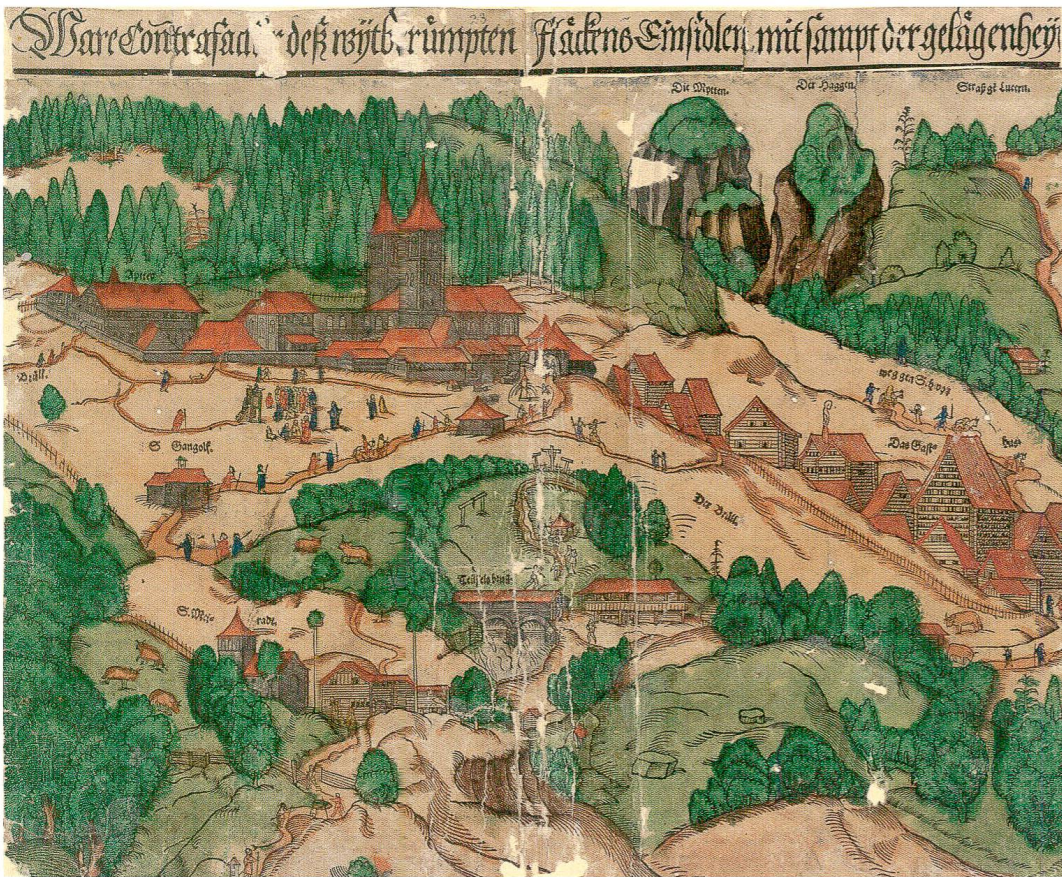 Ware Contrafact deß wytb rümpten Fläckens Einsidlen mit sampt der gelägenhey
23
Die Mytten.
Der Haggen.
Straß gē Lucern.
Brüll.
weg gen Schwyz
S Gangolf.
Das Gaßhus
Der Brüll.
Teüfels brug
S. Meiradt.